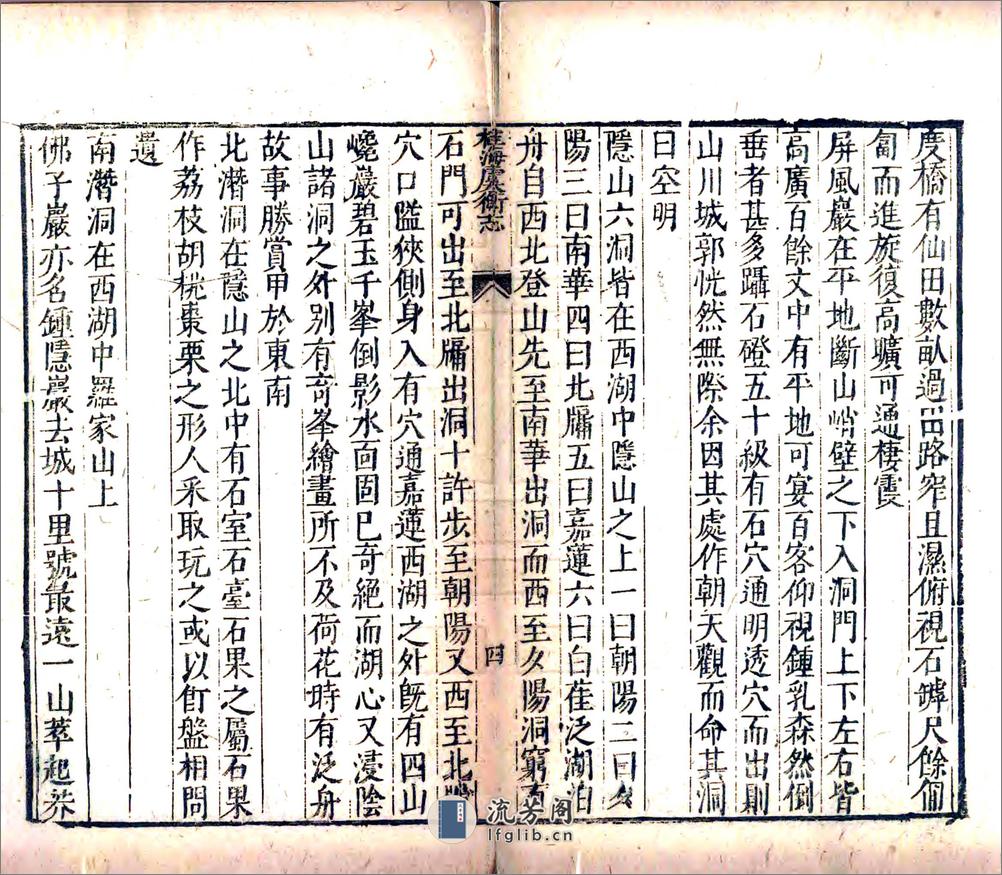 度橋有仙田數畝過田路窄且濕俯視石罅尺餘匍
匐而進旋復高曠可通棲霞
屏風巖在平地斷山峭壁之下入洞門上下左右皆
高廣百餘丈中有平地可宴百客仰視鍾乳森然倒
垂者甚多躡石磴五十級有石穴通明透穴而出則
山川城郭恍然無際余因其處作朝天觀而命其洞
曰空明
隱山六洞皆在西湖中隱山之上一曰朝陽二曰夕
陽三曰南華四曰北牖五曰嘉蓮六曰白雀泛湖泊
舟自西北登山先至南華出洞而西至夕陽洞窮有
桂海虞衡志
四
石門可出至北牖出洞十許步至朝陽又西至北牖
穴口隘狹側身入有穴通嘉蓮西湖之外既有四山
巉巖碧玉千峯倒影水面固已奇絕而湖心又浸陰
山諸洞之外別有奇峯繪畫所不及荷花時有泛舟
故事勝賞甲於東南
北潛洞在隱山之北中有石室石臺石果之屬石果
作荔枝胡桃棗栗之形人采取玩之或以飣盤相問
遺
南潛洞在西湖中羅家山上
佛子巖亦名鍾隱巖去城十里號最遠一山萃起莽
流芳阁
lfglib.cn